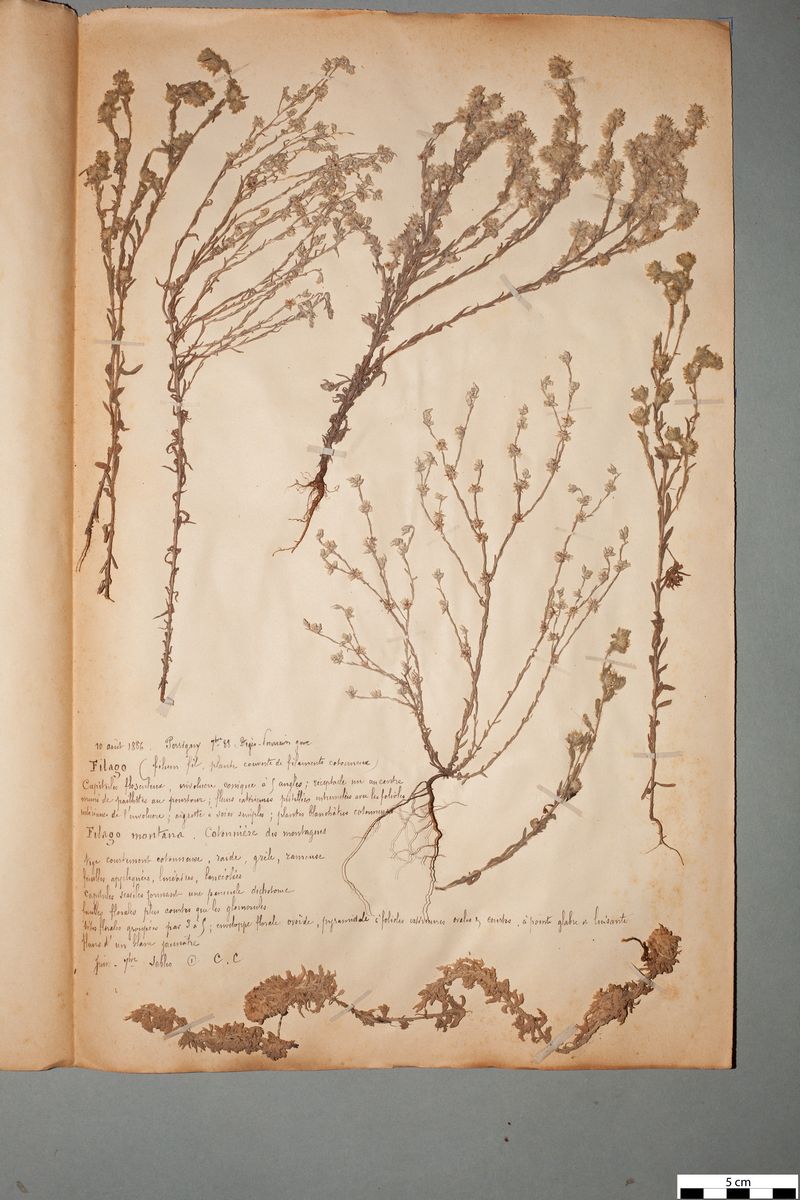 10 août 1886. Persigny 7bre 88.
Filago (folium fil, plante couverte de filaments cotonneux)
Capitules flosculeux, involucre conique à 5 angles; réceptacle nu au centre
muni de paillettes au pourtour; fleurs extérieures pistillées entremêlées avec les folioles
intérieures de l'involucre; aigrette à soies simples; plantes blanchâtres cotonneuses
Filago montana. Cotonnière des montagnes
Tige courtement cotonneuse, raide, grêle, rameuse
feuilles appliquées, linéaires, lancéolées
capitules sessiles formant une panicule dichotome
feuilles florales plus courtes que les glomérules
têtes florales groupées par 3 à 5; enveloppe florale ovoïde, pyramidale folioles extérieures ovales courtes, à pointe glabre & luisante
fleurs d'un blanc jaunâtre
Juin - 7bre Sables ① C.C
5 cm